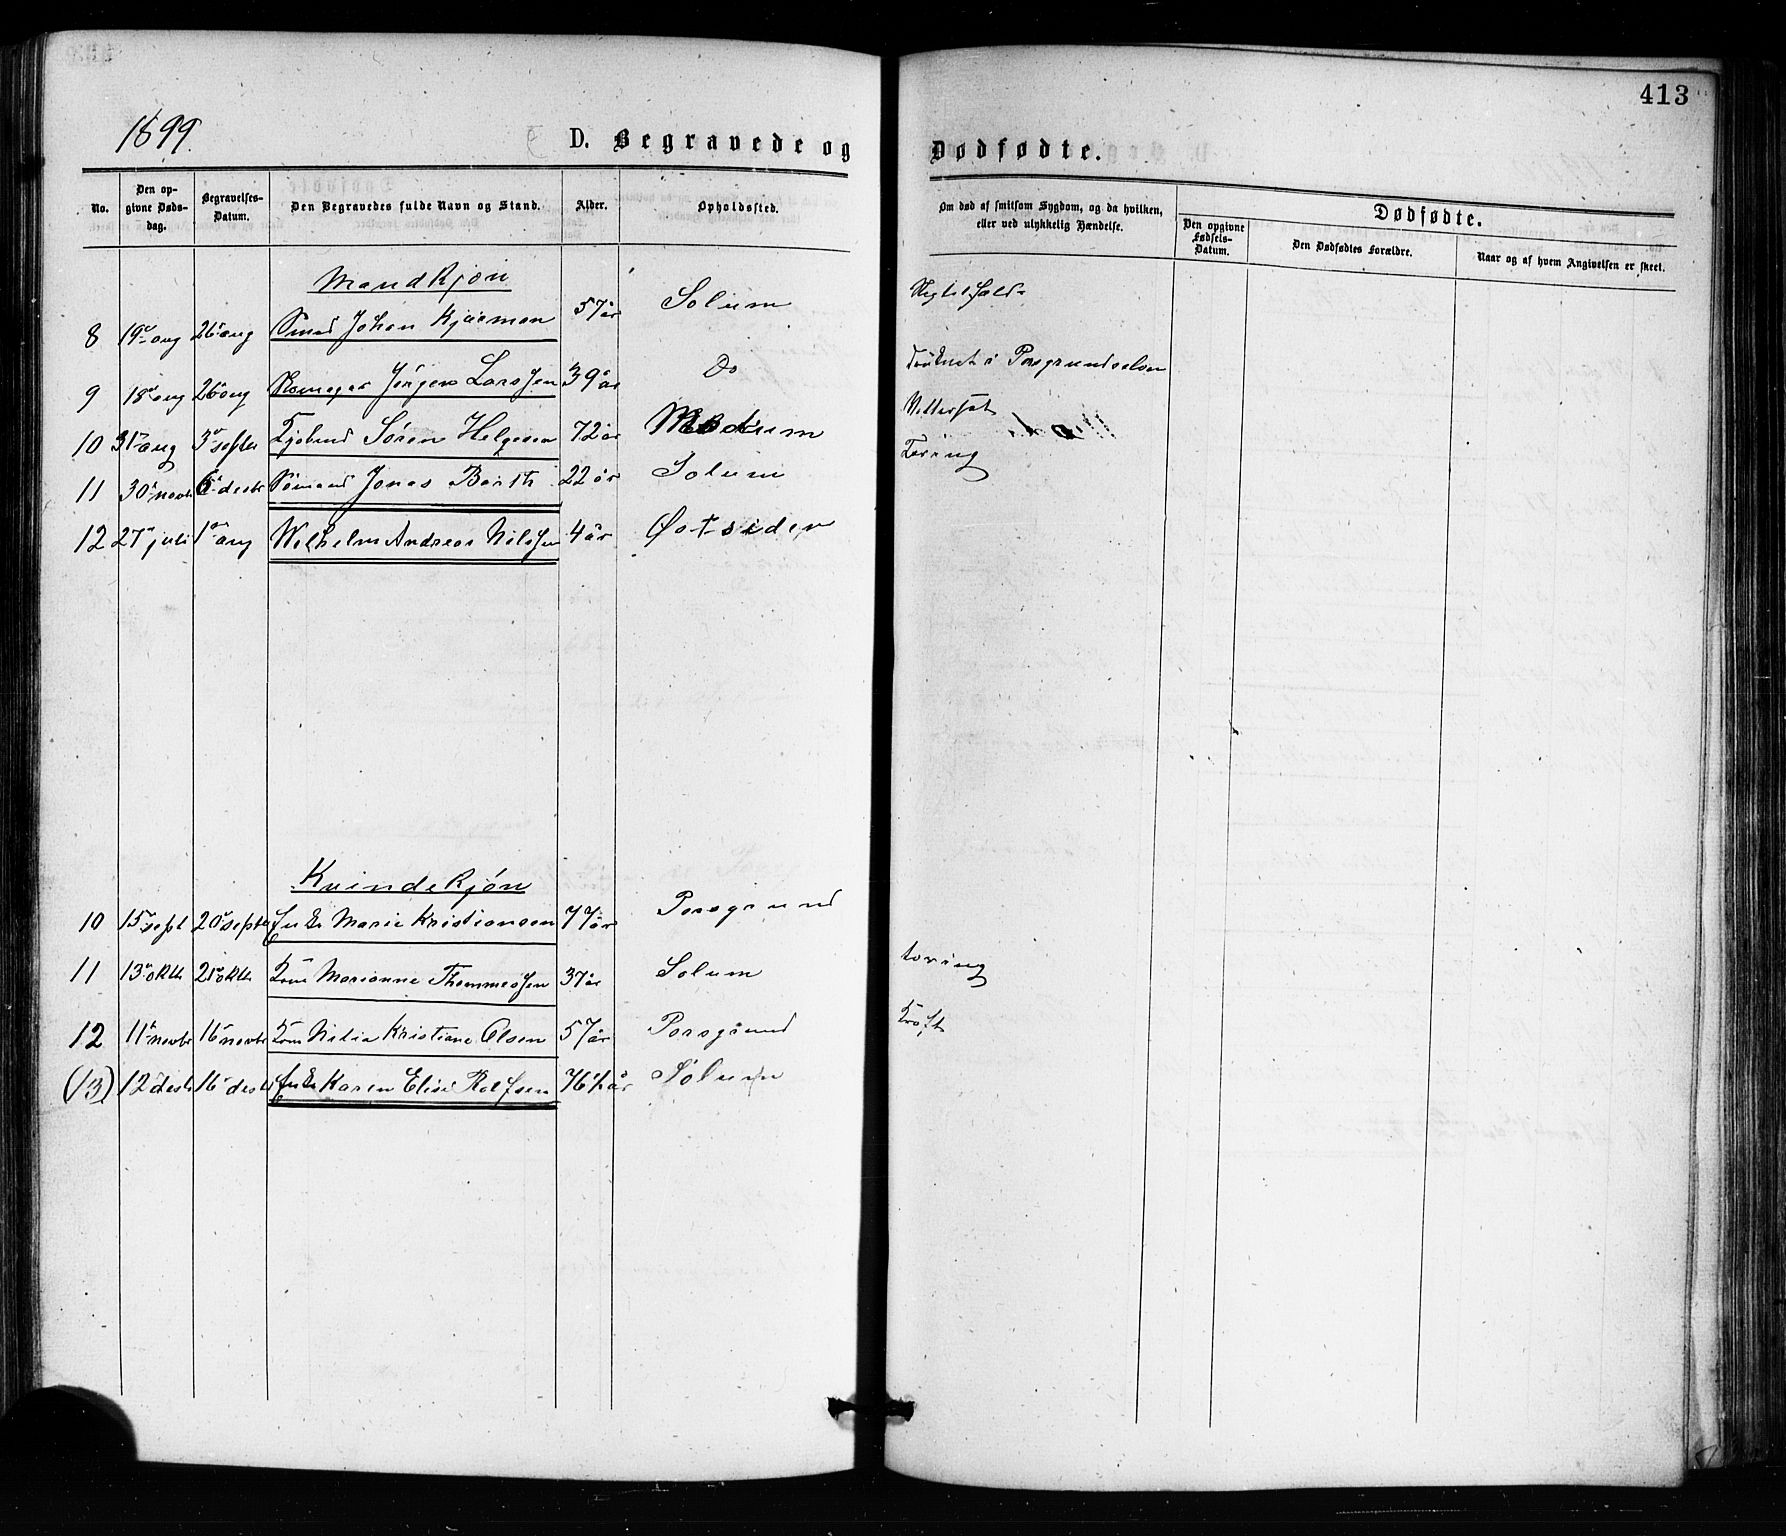 413
1899.
D. Begravede og Dødfødte.
No. Den opgivne Dødsdag. Begravelses-Datum. Den Begravedes fulde Navn og Stand. Alder. Opholdssted. Om død af smitsom Sygdom, og da hvilken, eller ved ulykkelig Hændelse. Dødfødte.
Den opgivne Fødsels-Datum. Den Dødfødtes Forældre. Naar og af hvem Angivelsen er skeet.
Mandkjøn
8 19 aug 26 aug Smed Johan Kjærman 57 år Solum
9 18 aug 26 aug Jørgen Larssen 39 år Do Druknet i Porsgrundselven
10 31 aug 3 septbr Søren Helgesen 72 år
11 30 novbr 6 desbr Sømand Jonas Barth 22 år Solum Tæring
12 27 juli 1 aug Wilhelm Andreas Nilssen 4 år Østsiden
Kvindekjøn
10 15 sept 20 septbr Enke Marie Kristiansen 77 år Porsgrund
11 13 oktb 21 oktb Kone Marianne Thommessen 37 år Solum tæring
12 11 novbr 16 novbr Kone Kristiane Olsen 57 år Porsgrund Kræft
(13) 12 desb 16 desb Enke Karen Elise Rolfsen 76 1/2 år Solum